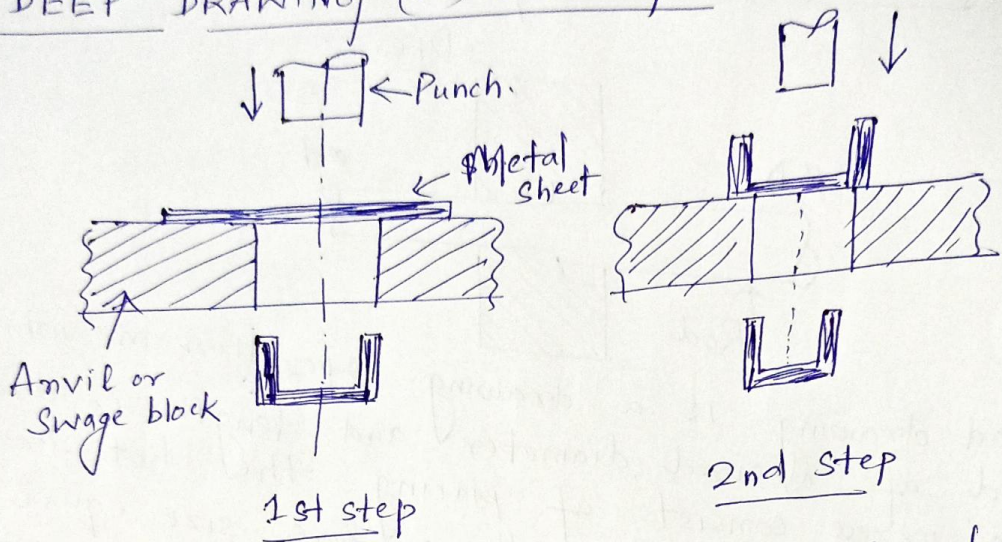 DEEP DRAWING (
Punch.
Metal
sheet
Anvil or
Swage block
1st step
2nd step